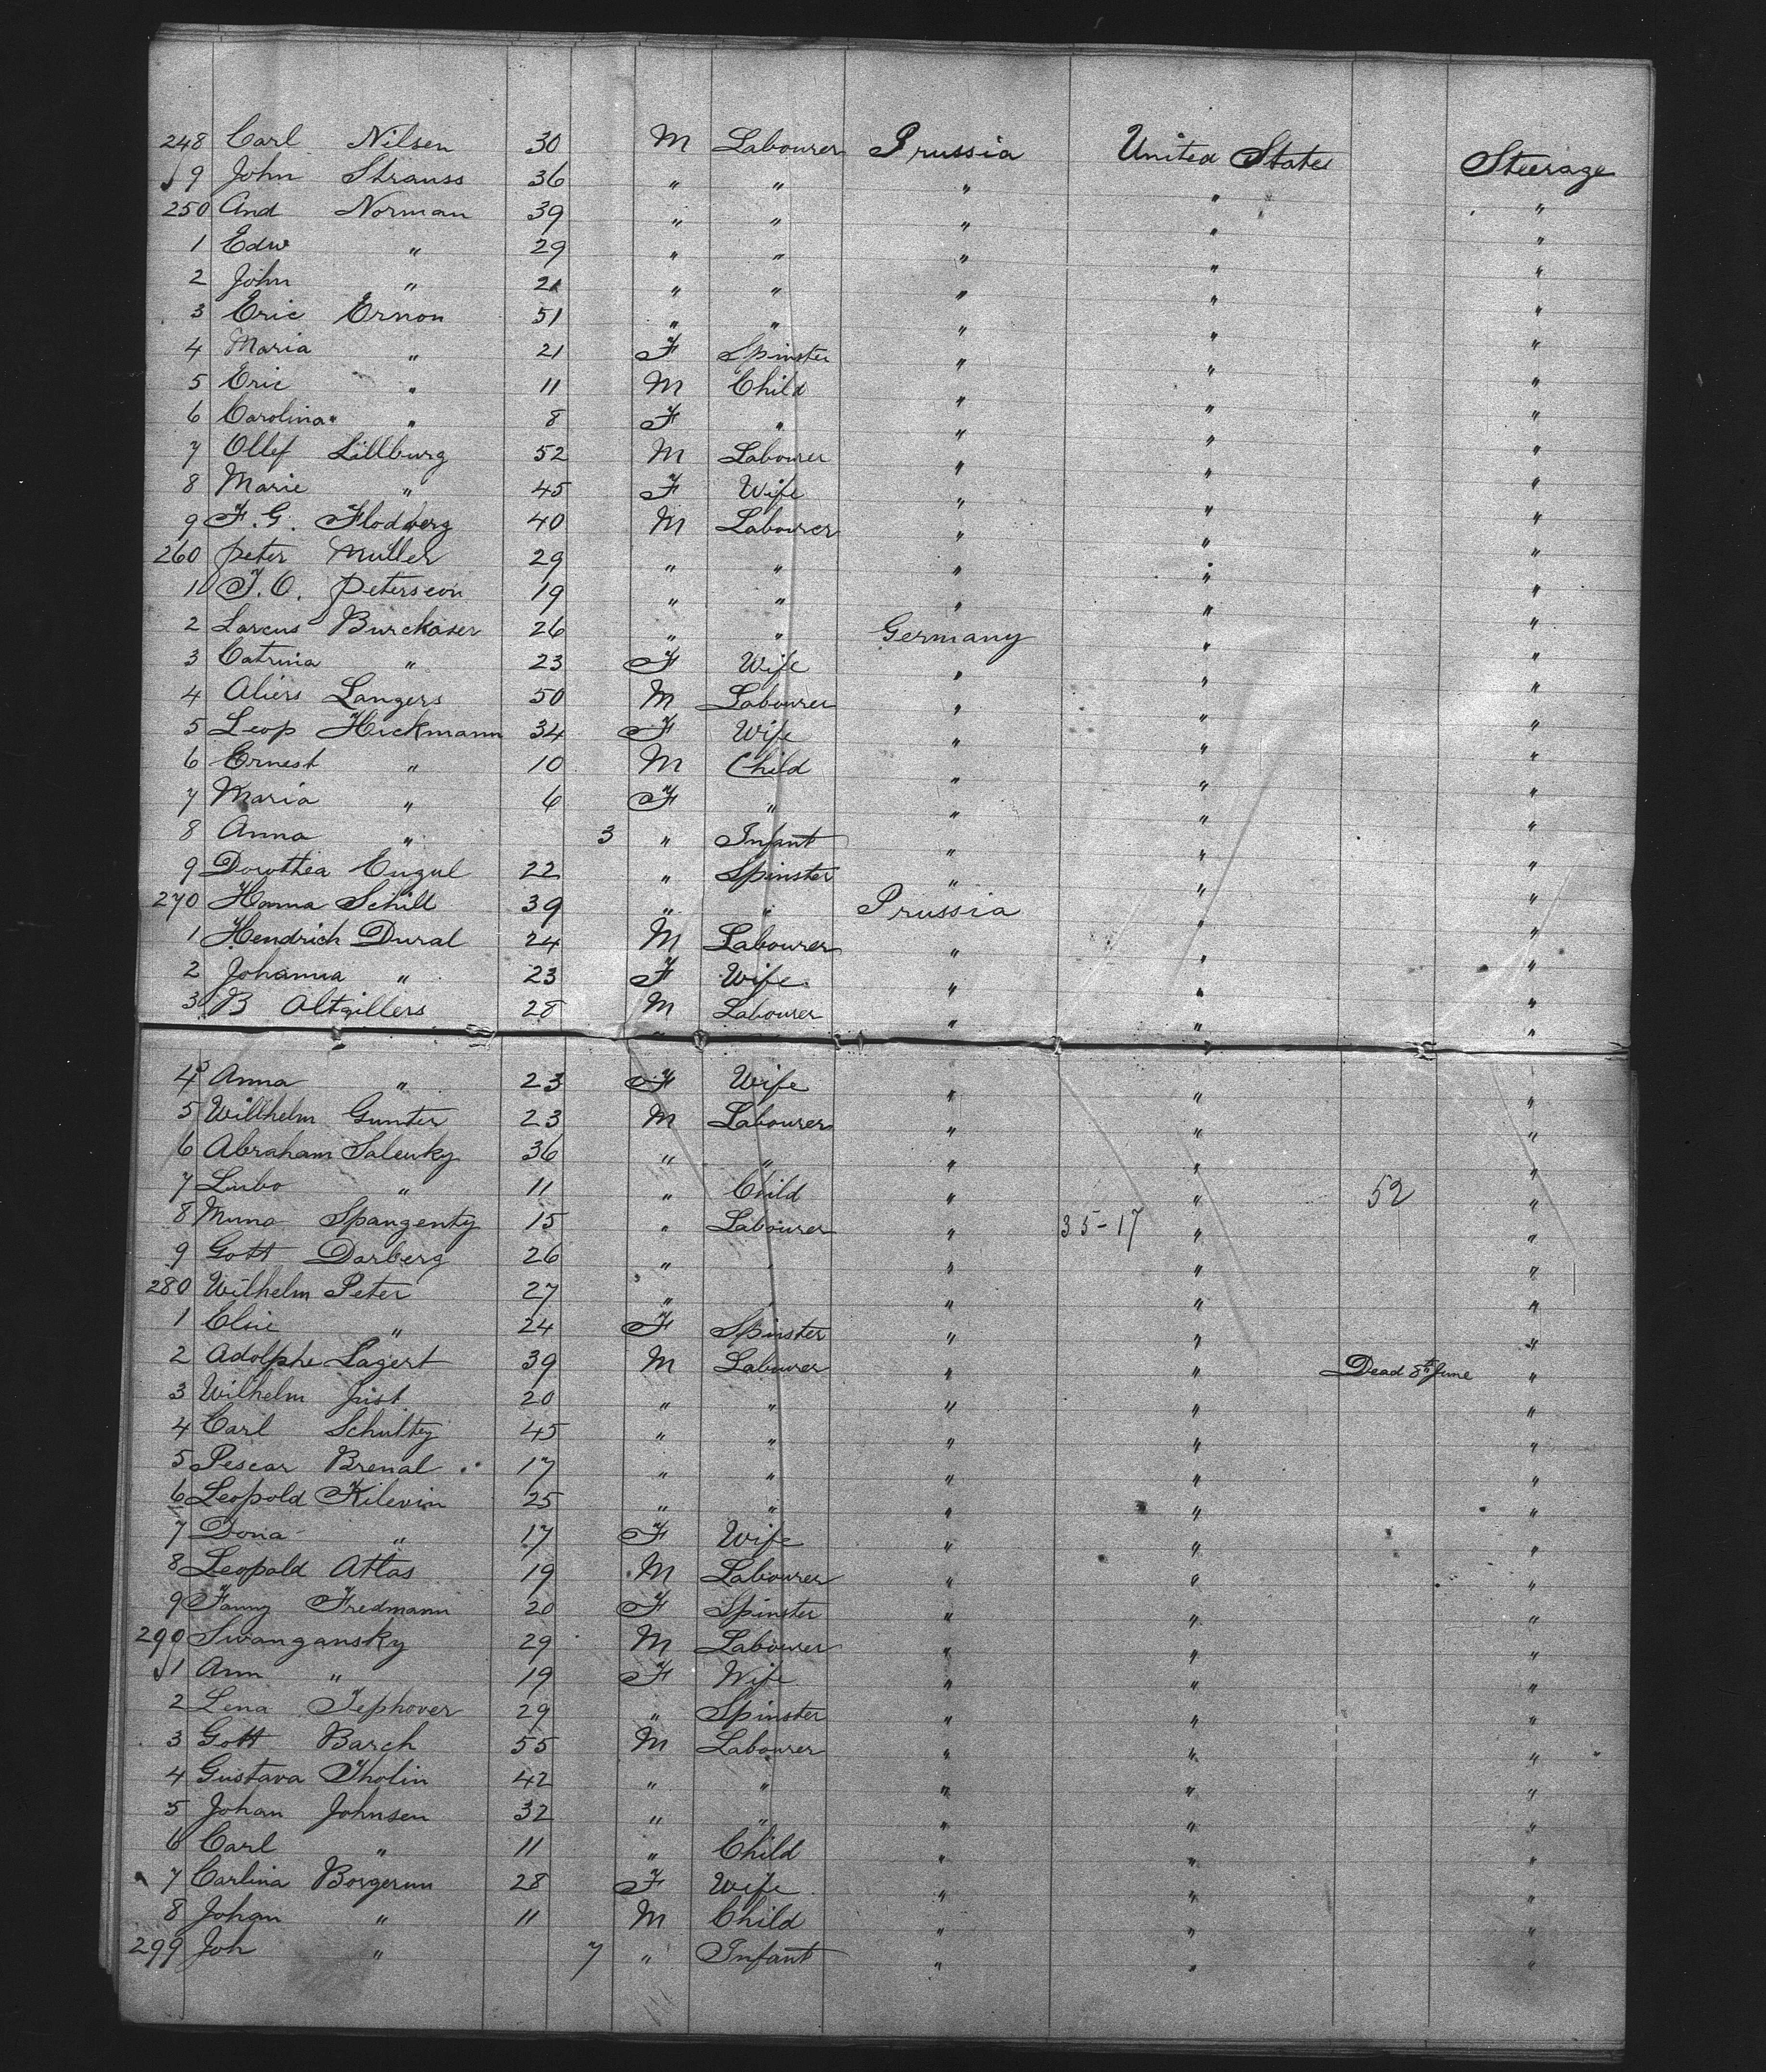 248 Carl Nilsen 30 M Labourer Prussia United States Steerage
9 John Strauss 36 " " " " "
250 And Norman 39 " " " " "
1 Edw " 29 " " " " "
2 John " 21 " " " " "
3 Eric Ernon 51 " " " " "
4 Maria " 21 F Spinster " " "
5 Eric " 11 M Child " " "
6 Carolina " 8 F " " " "
7 Ollef Lillburg 52 M Labourer " " "
8 Marie " 45 F Wife " " "
9 F. G. Flodberg 40 M Labourer " " "
260 Peter Muller 29 " " " " "
1 J. O. Peterseon 19 " " " " "
2 Larcus Burckaser 26 " " Germany " "
3 Catrina " 23 F Wife " " "
4 Aliers Langers 50 M Labourer " " "
5 Leop Hickmann 34 F Wife " " "
6 Ernest " 10 M Child " " "
7 Maria " 6 F " " " "
8 Anna " 3 " Infant " " "
9 Dorothea Engul 22 " Spinster " " "
270 Hanna Schill 39 " " Prussia " "
1 Hendrich Dural 24 M Labourer " " "
2 Johanna " 23 F Wife " " "
3 B Altgillers 28 M Labourer " " "
4 Anna " 23 F Wife " " "
5 Willhelm Gunter 23 M Labourer " " "
6 Abraham Salenky 36 " " " " "
7 Lubo " 11 " Child " " 52 "
8 Muna Spangenty 15 " Labourer " 35-17 " "
9 Gott Darberg 26 " " " " "
280 Wilhelm Peter 27 " " " " "
1 Elsie " 24 F Spinster " " "
2 Adolphe Lagert 39 M Labourer " " Dead 8th June "
3 Wilhelm Just 20 " " " " "
4 Carl Schultz 45 " " " " "
5 Pescar Brenal 17 " " " " "
6 Leopold Kilevin 25 " " " " "
7 Dona " 17 F Wife " " "
8 Leopold Atlas 19 M Labourer " " "
9 Fanny Fredmann 20 F Spinster " " "
290 Swangansky 29 M Labourer " " "
1 Ann " 19 F Wife " " "
2 Lena Tephover 29 " Spinster " " "
3 Gott Barch 55 M Labourer " " "
4 Gustava Tholin 42 " " " " "
5 Johan Johnsen 32 " " " " "
6 Carl " 11 " Child " " "
7 Carlina Borgerun 28 F Wife " " "
8 Johan " 11 M Child " " "
299 Joh " 7 " Infant " " "